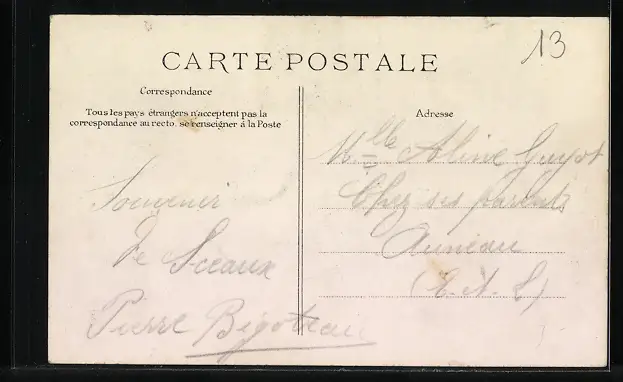 13
CARTE POSTALE
Correspondance
Tous les pays étrangers n'acceptent pas la
correspondance au recto. se renseigner à la Poste
Adresse
Souvenir
de Sceaux
Pierre
Mlle Aline Guyot
Chez ses parents
Auneau
(E.-&-L)